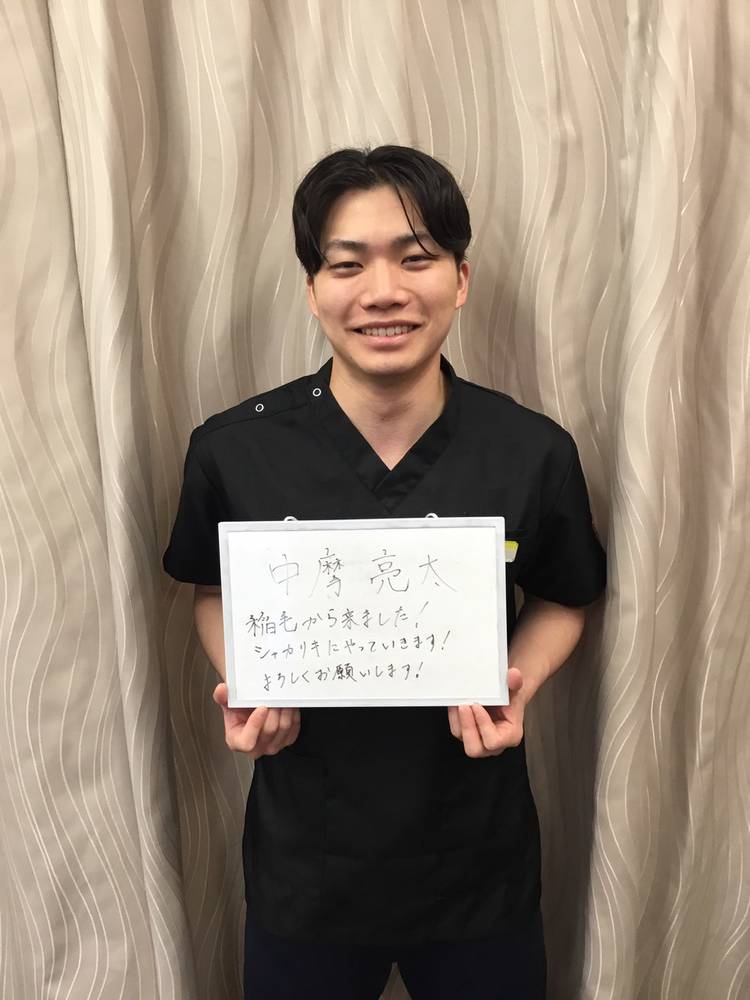 中摩 亮太
稲毛から来ました!
シャカリキにやっていきます!
よろしくお願いします!